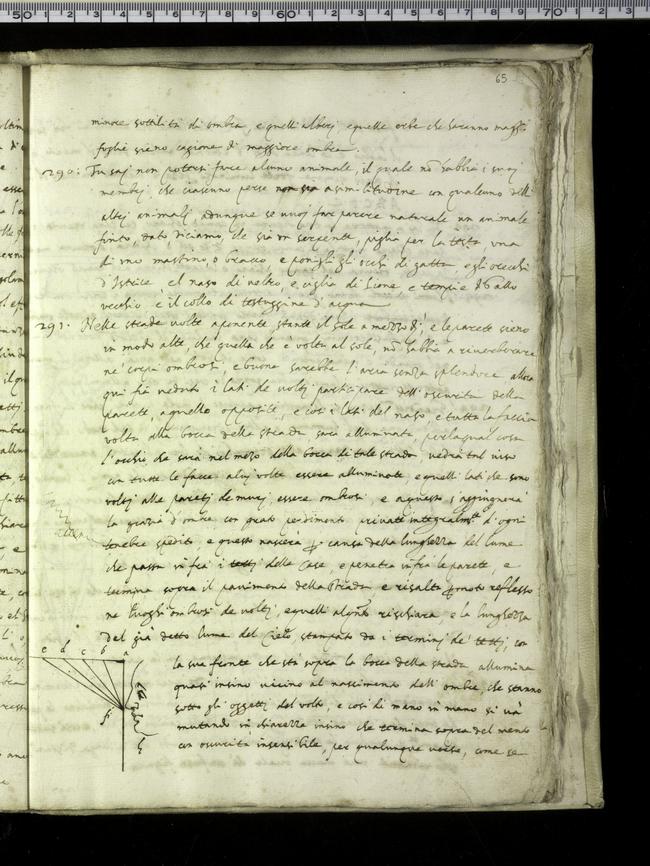 65
minore sottilità di ombra, e quelli alberi, e quelle erbe che saranno maggior
foglie sieno, cagione di maggiore ombra.
290: Tu sai non potersi fare alcuno animale, il quale nō habbia i suoi
membri, che ciascuno per se non sia a similitudine con qualcuno delli
altri animali, Adunque se vuoi far parere naturale un animale
finto, dato, diciamo che sia un serpente, piglia per la testa una
di uno mastino, o bracco, e ponigli gli occhi di gatta, e gli orecchi
d'Istrice, el naso di veltro, e ciglia di Lione, e tempie di Gallo
vecchio, e il collo di testuggine d'acqua
291. Nelle strade volte a ponente stante il sole a mezzo dì, e le parete sieno
in modo alte, che quella che è volta al sole, nō habbia a riverberare
ne' corpi ombrosi, e buona sarebbe l'aria senza splendore, allora
che fia veduto i lati de volti participare dell'oscurità delle
parete, a quello opposite, e così i lati del naso, e tutta la faccia
volta alla bocca della strada sarà alluminata, per la qual cosa
l'occhio che sarà nel mezo della bocca di tale strada vedrà tal viso
con tutte le facce a lui volte essere alluminate, e quelli lati che sono
volti alle pareti de muri, essere ombrosi e a questo s'aggiugnerà
la grazia d'ombre con grato perdimento private integralmte d'ogni
termine spedito e questo nascerà p causa della lunghezza del lume
che passa infra i tetti delle Case, e penetra infra le parete, e
termina sopra il pavimento della strada e risalta p moto reflesso
ne luoghi ombrosi de volti, e quelli alqto rischiara, e la lunghezza
del già detto lume del Cielo stampato da i termini de' tetti, con
la sua fronte che sta sopra la bocca della strada allumina
quasi insino vicino al nascimento dell'ombre, che stanno
sotto gli oggetti del volto, e così di mano in mano si và
mutando in chiarezza insino che termina sopra del mento
con oscurità insensibile, per qualunque verso, come se
e d c b a
f